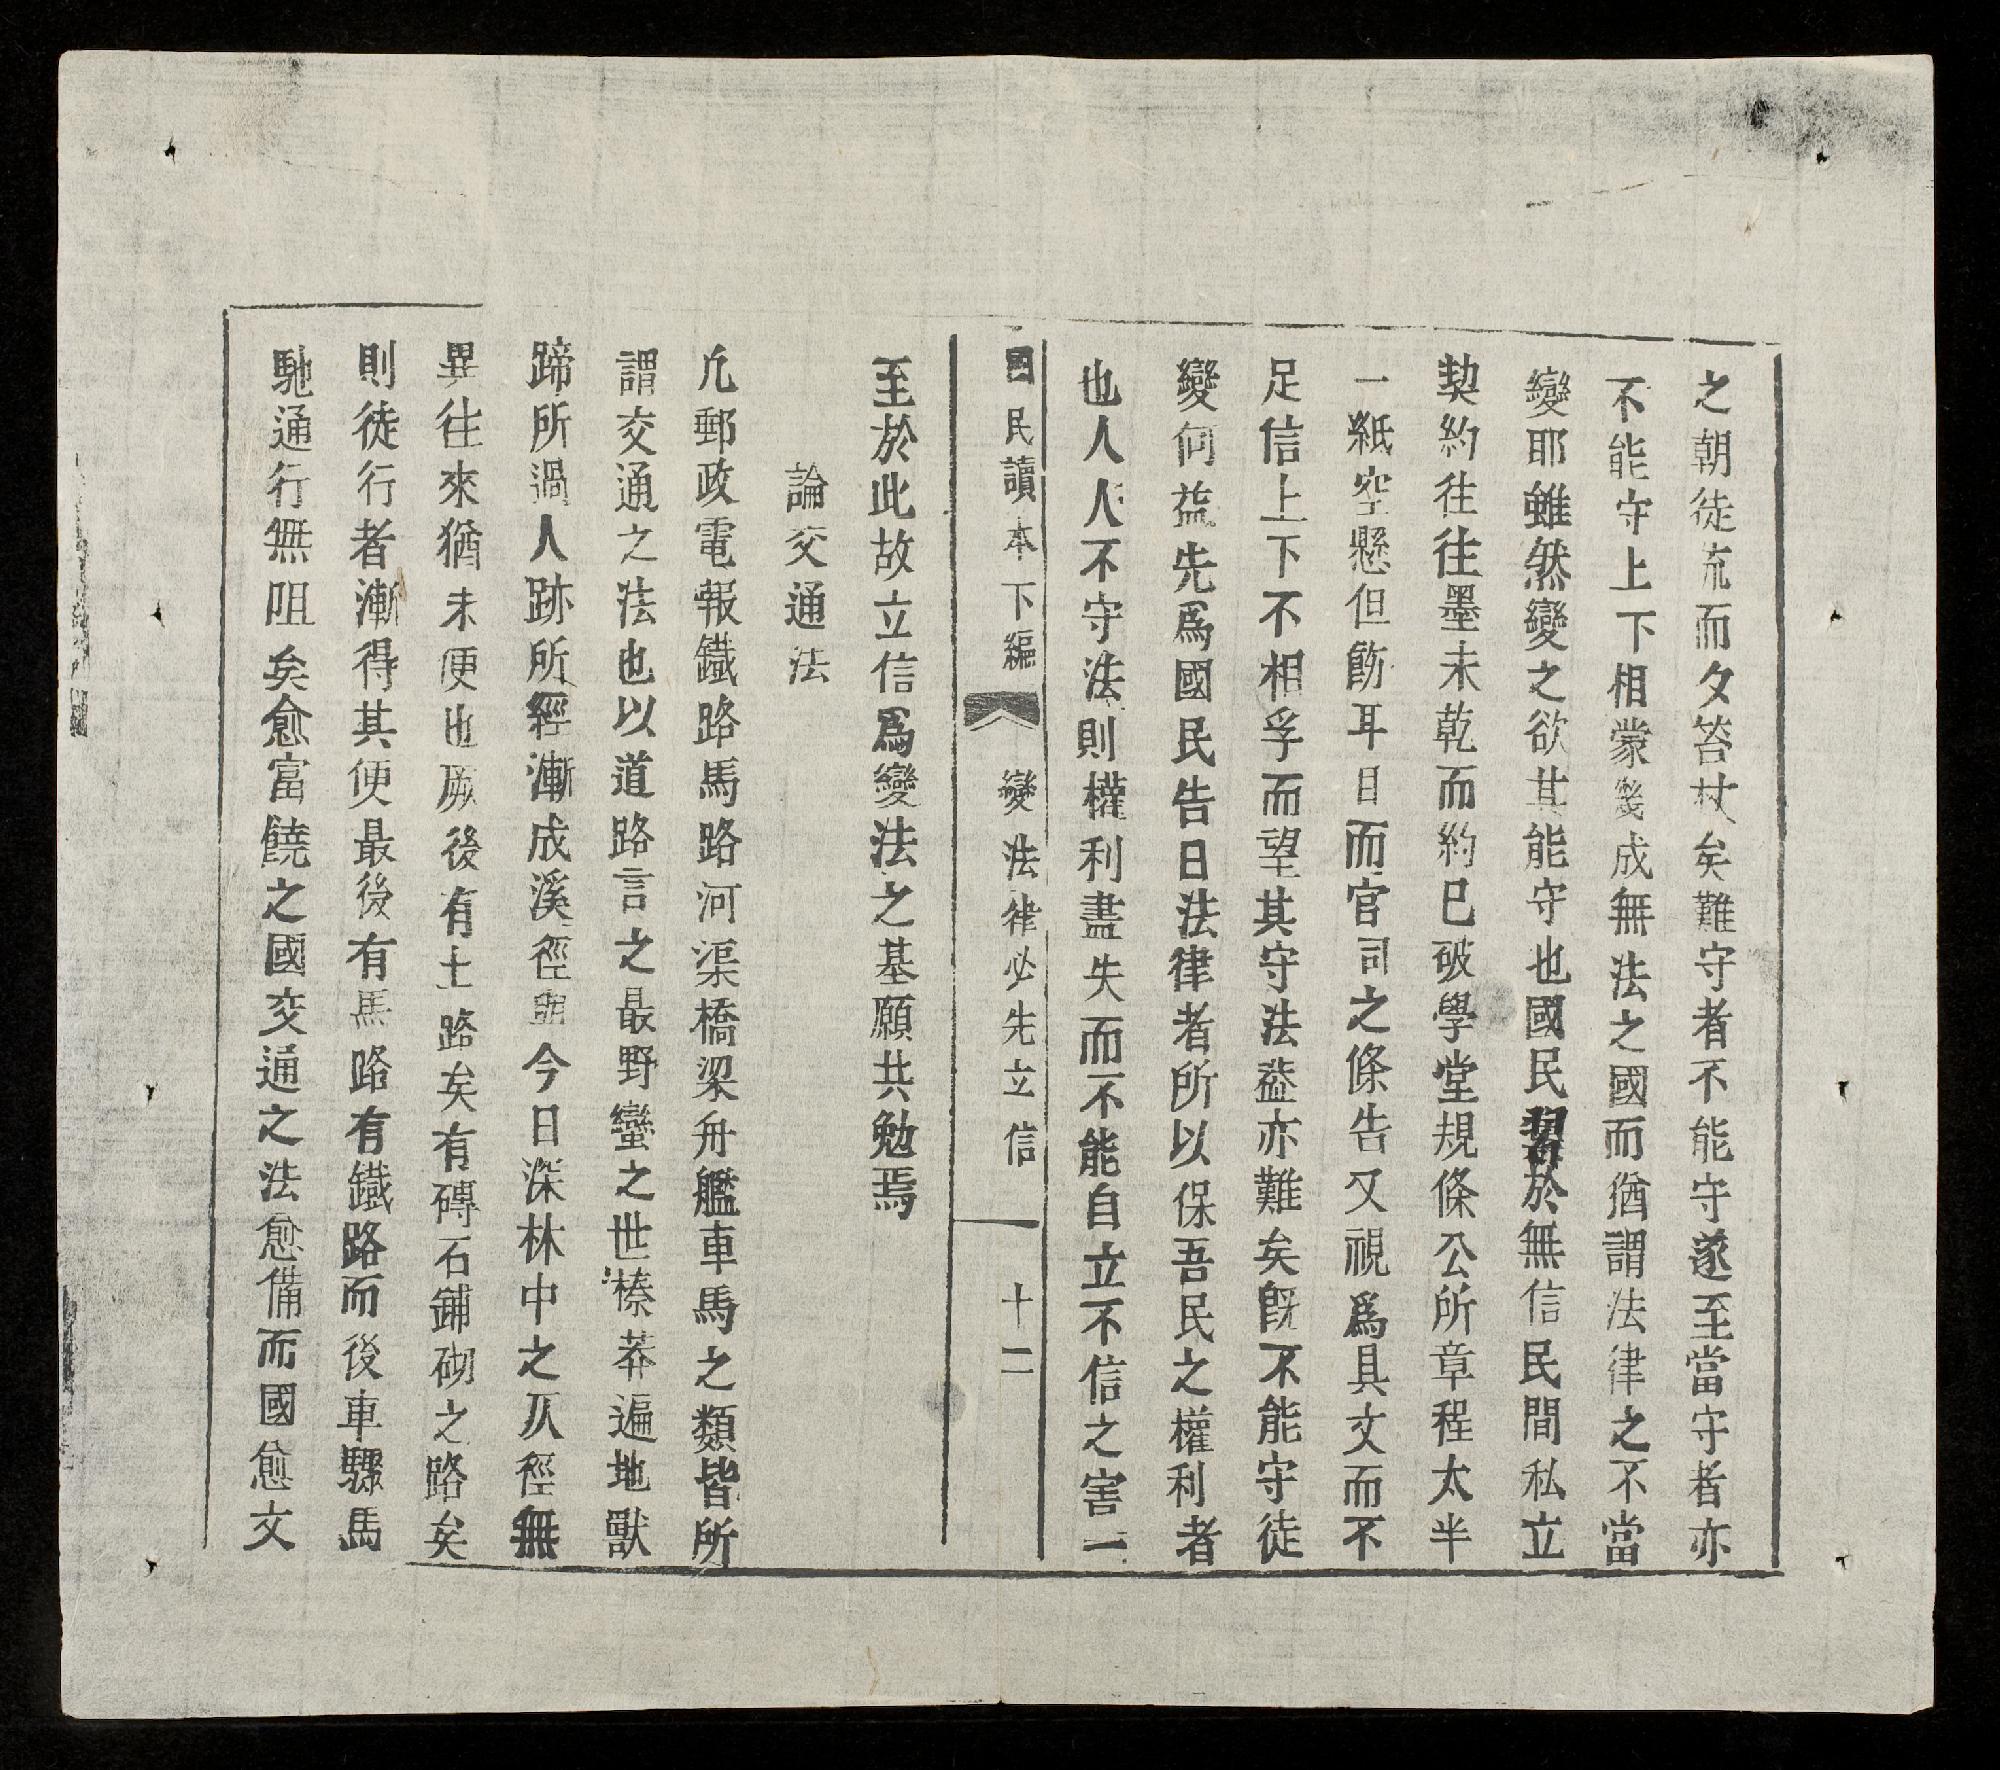 之朝徒流而夕笞杖矣難守者不能守遂至當守者亦
不能守上下相蒙幾成無法之國而猶謂法律之不當
變耶雖然變之欲其能守也國民習於無信民間私立
契約往往墨未乾而約已破學堂規條公所章程太半
一紙空懸但飭耳目而官司之條告又視爲具文而不
足信上下不相孚而望其守法葢亦難矣旣不能守徒
變何益先爲國民告曰法律者所以保吾民之權利者
也人人不守法則權利盡失而不能自立不信之害一
國民讀本下編 變法律必先立信 十二
至於此故立信爲變法之基願共勉焉
論交通法
凢郵政電報鐵路馬路河渠橋梁舟艦車馬之類皆所
謂交通之法也以道路言之最野蠻之世榛莽遍地獸
蹄所過人跡所經漸成溪徑與今日深林中之仄徑無
異往來猶未便也厥後有土路矣有磚石鋪砌之路矣
則徒行者漸得其便最後有馬路有鐵路而後車驟馬
馳通行無阻矣愈富饒之國交通之法愈備而國愈文